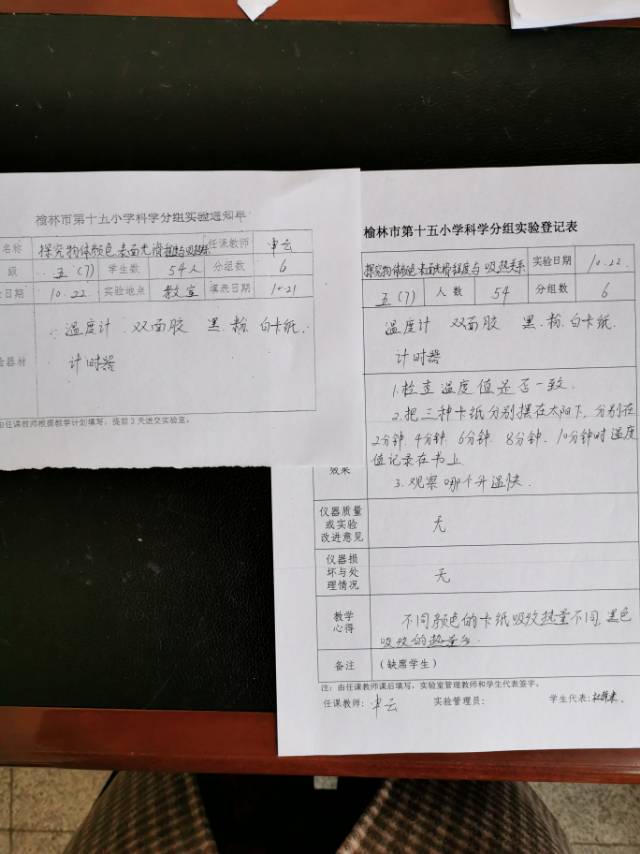 榆林市第十五小学科学分组实验通知单
名称 探究物体颜色、表面光滑程度与吸热关系 任课教师 申云
级 五(7) 学生数 54人 分组数 6
日期 10.22 实验地点 教室 填表日期 10.21
温度计 双面胶 黑.粉.白卡纸.
器材 计时器
由任课教师根据教学计划填写，提前3天送交实验室。
榆林市第十五小学科学分组实验登记表
探究物体颜色、表面光滑程度与吸热关系 实验日期 10.22.
五(7) 人数 54 分组数 6
温度计 双面胶 黑.粉.白卡纸.
计时器
1.检查温度值是否一致.
2.把三种卡纸分别摆在太阳下,分别在
2分钟.4分钟.6分钟.8分钟.10分钟时温度
值记录在书上
效果 3.观察哪个升温快.
仪器质量
或实验
改进意见 无
仪器损
坏与处
理情况 无
教学
心得 不同颜色的卡纸吸收热量不同,黑色
吸收的热量多.
备注 (缺席学生)
注：由任课教师课后填写，实验室管理教师和学生代表签字。
任课教师: 申云 实验管理员: 学生代表: